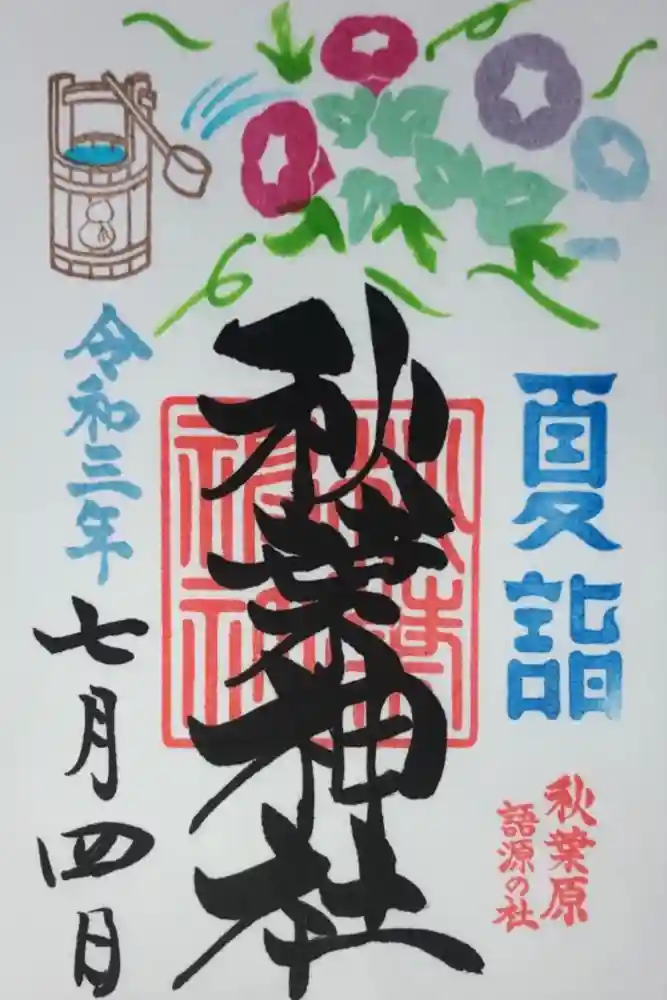 夏詣
秋葉原
語源の社
秋葉神社
秋葉
神社
令和三年
七月四日